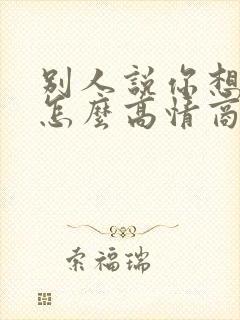 別人說你想
怎麼高情商
索福瑞